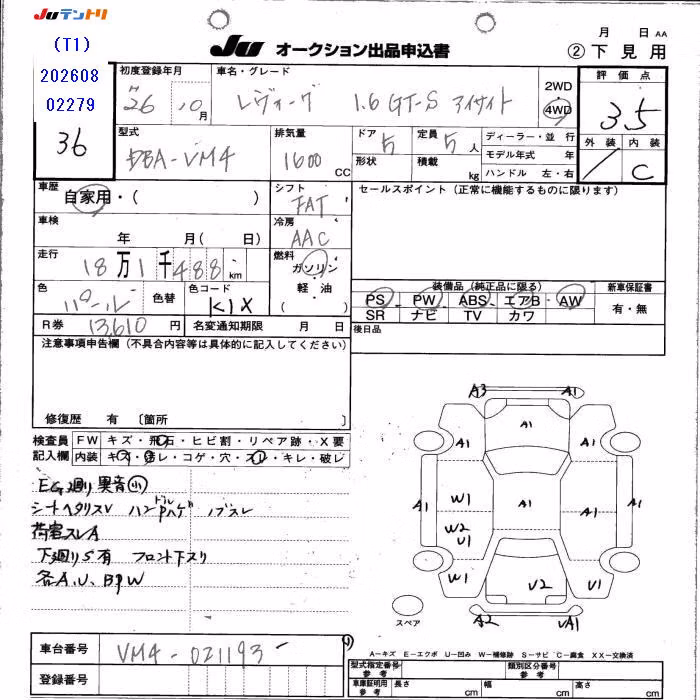 JUテントリ
(T1)
202608
02279
36
JU オークション出品申込書
月 日 AA
② 下見用
初度登録年月
H26 10月
車名・グレード
レヴォーグ 1.6 GT-S アイサイト
2WD
4WD
評価点
3.5
外装 内装
C
型式
DBA-VM4
排気量
1600 CC
ドア 5
形状
定員 5 人
積載 kg
ディーラー・並行
モデル年式 年
ハンドル 左・右
車歴
自家用・( )
シフト
FAT
セールスポイント(正常に機能するものに限ります)
車検
年 月( 日)
冷房
AAC
走行
18万1千488km
燃料
ガソリン
軽・油
( )
色
パール
色替
色コード
K1X
装備品(純正品に限る)
新車保証書
PS PW ABS エアB AW
SR ナビ TV カワ
有・無
R券 13,610円
名変通知期限 月 日
後日品
注意事項申告欄(不具合内容等は具体的に記入してください)
修復歴 有 〔箇所 〕
検査員
記入欄
FW キズ・飛石・ヒビ割・リペア跡・X要
内装 キズ・汚レ・コゲ・穴・スレ・キレ・破レ
EG廻り異音小
シートヘタリスレ ハンドルハゲ ノブスレ
荷室スレA
下廻りS有 フロント下スリ
各A.U.BPW
A3 A1
A1
A1 A1
W1
A1 A1 A1
W2
U1
W1 V2 U1
A2 UA1
スペア
車台番号
VM4-021193
登録番号
A-キズ E-エクボ U-凹み W-補修跡 S-サビ C-腐食 XX-交換済
型式指定番号
参考
類別区分番号
参考
車庫証明用
参考
長さ cm 幅 cm 高さ cm